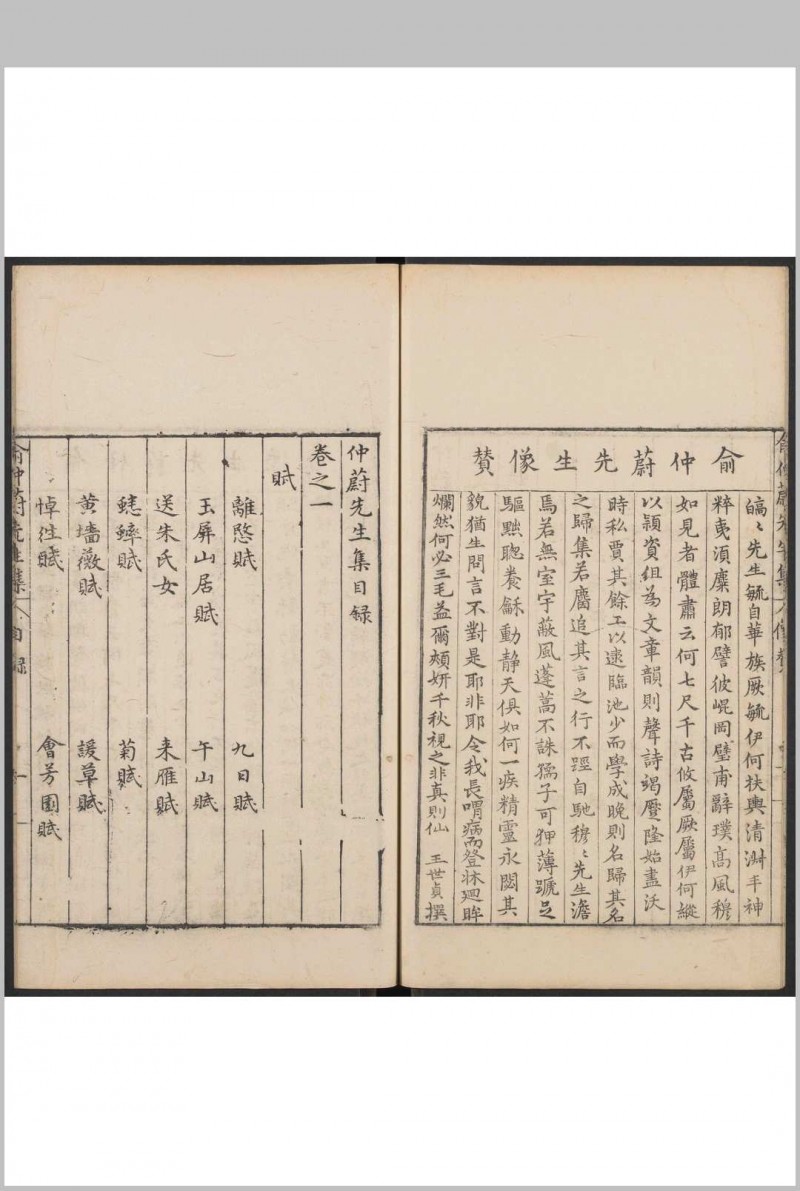 俞仲蔚先生像贊
皜〻先生毓自華族厥毓伊何扶輿清淑丰神
粹夷湏麋朗郁譬彼崐岡璧甫辭璞髙風穆
如見者體肅云何七尺千古攸屬厥屬伊何縱
以穎資組為文章韻則聲詩竭蹷隆始盡沃
時私賈其餘工以逮臨池少而學成晚則名歸其名
之歸集若麕追其言之行不踁自馳穆〻先生澹
焉若無室宇蔽風蓬蒿不誅孺子可狎薄蹏足
驅黜聰養龢動靜天俱如何一疾精靈永閟其
貌猶生問言不對是耶非耶令我長喟病而登牀廻眸
爛然何必三毛益爾頰妍千秋視之非真則仙 王世貞撰
仲蔚先生集目録
卷之一
賦
離愍賦 九日賦
玉屏山居賦 午山賦
送朱氏女 来雁賦
蟋蟀賦 菊賦
黄墻薇賦 諼草賦
悼徃賦 會芳園賦
俞仲蔚先生集 目録